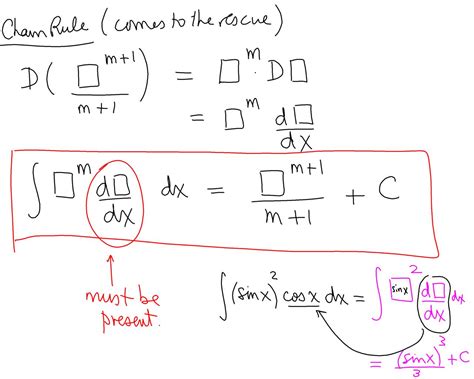 Chain Rule (comes to the rescue)
D( □^{m+1} / m+1 ) = □^m · D□
= □^m d□/dx
∫ □^m d□/dx dx = □^{m+1} / m+1 + C
must be
present.
∫ (sinx)^2 cosx dx = ∫ [sinx]^2 d□/dx dx
= (sinx)^3 / 3 + C